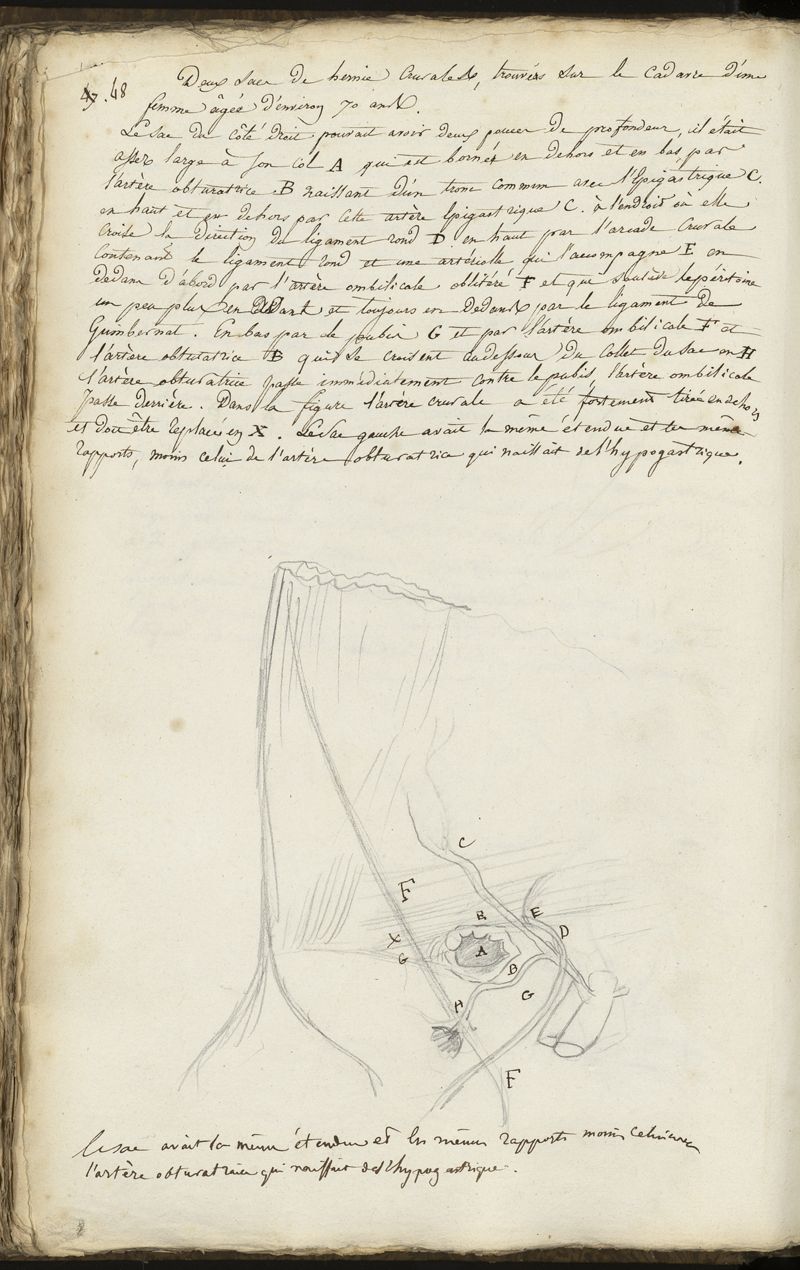 47. 48 Deux sacs de hernie Crurales, trouvés sur le cadavre d'une
femme âgée d'environ 70 ans.
Le sac du côté droit pouvait avoir deux pouces de profondeur, il était
assez large à son col A qui est bornés en dehors et en bas par
l'artère obturatrice B naissant d'un tronc commun avec l'Epigastrique C.
en haut et en dehors par cette artère Epigastrique C. à l'endroit où elle
croise la direction du ligament rond D en haut par l'arcade Crurale
Contenant le ligament rond et une artériole qui l'accompagne E en
dedans d'abord par l'artère ombilicale oblitéré F et qui soulève le péritoine
un peu plus en dedans et toujours en dedans par le ligament de
Gimbernat. En bas par le pubis G et par l'artère ombilicale F et
l'artère obturatrice B qui se croisent au dessous du Collet du sac en H
l'artère obturatrice passe immédiatement contre le pubis, l'artère ombilicale
passe derrière. Dans la figure l'artère crurale a été fortement tirée en dehors
et doit être replacée en X. Le sac gauche avait la même étendue et les mêmes
rapports, moins celui de l'artère obturatrice qui naissait de l'hypogastrique.
C
F
E
R
D
X
A
G
B
G
H
F
le sac avait la même étendue et les mêmes rapports moins celui
l'artère obturatrice qui naissait de l'hypogastrique.